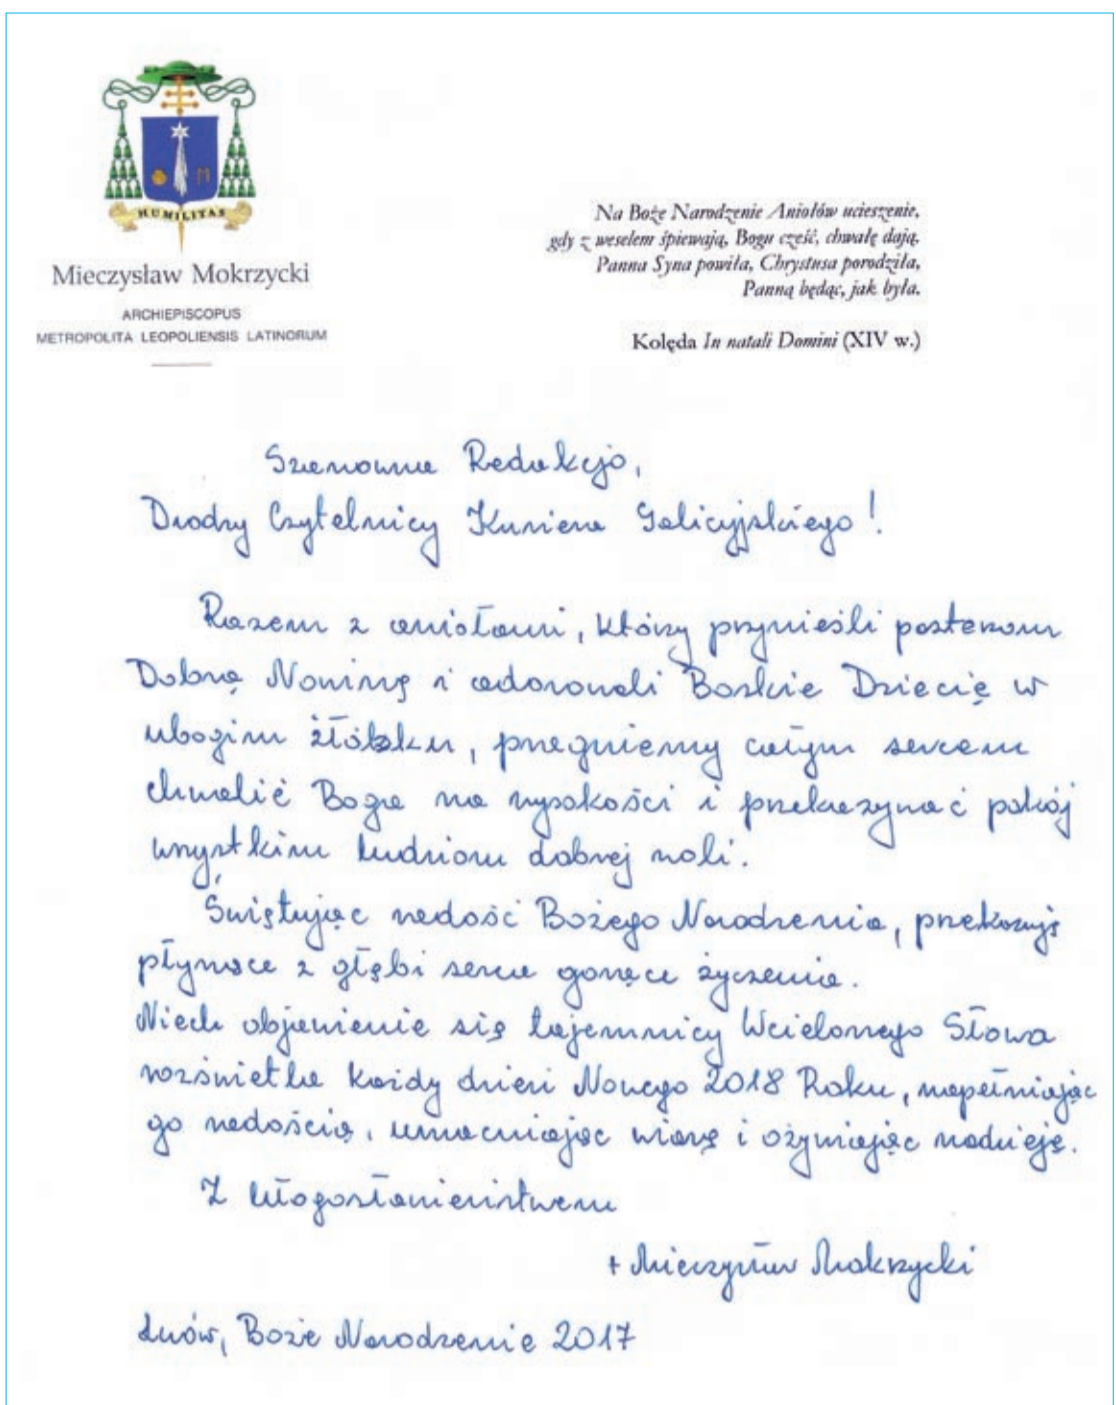 HUMILITAS
Mieczysław Mokrzycki
ARCHIEPISCOPUS
METROPOLITA LEOPOLIENSIS LATINORUM
Na Boże Narodzenie Aniołów ucieszenie,
gdy z weselem śpiewają, Bogu cześć, chwałę dają.
Panna Syna powiła, Chrystusa porodziła,
Panną będąc, jak była.
Kolęda In natali Domini (XIV w.)
Szanowna Redakcjo,
Drodzy Czytelnicy Kuriera Galicyjskiego!
Razem z aniołami, którzy przynieśli pasterzom
Dobrą Nowinę i adorowali Boskie Dziecię w
ubogim żłóbku, pragniemy całym sercem
chwalić Boga na wysokości i przekazywać pokój
wszystkim ludziom dobrej woli.
Świętując radość Bożego Narodzenia, przekazuję
płynące z głębi serca gorące życzenia.
Niech objawienie się tajemnicy Wcielonego Słowa
rozświetla każdy dzień Nowego 2018 Roku, napełniając
go radością, umacniając wiarę i ożywiając nadzieję.
Z błogosławieństwem
+ Mieczysław Mokrzycki
Lwów, Boże Narodzenie 2017